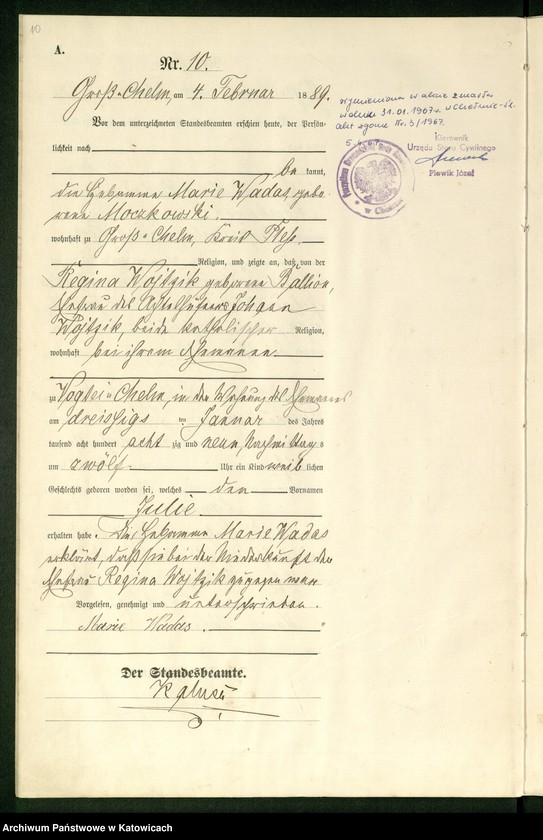 10
A.
Nr. 10.
Groß-Chelm, am 4. Februar 1889.
Vor dem unterzeichneten Standesbeamten erschien heute, der Persön-
lichkeit nach
be kannt,
die Hebamme Marie Wadas, gebo-
rene Moczkowski.
wohnhaft zu Groß-Chelm, Kreis Pleß,
Religion, und zeigte an, daß von der
Regina Wojtzik geborene Ballion,
Ehefrau des Johann
Wojtzik, beide katholischer Religion,
wohnhaft bei ihrem Ehemanne.
zu Vogtei-Chelm, in der Wohnung des Ehemannes
am dreißigs ten Januar des Jahres
tausend acht hundert acht zig und neun, Nachmittags
um zwölf Uhr ein Kind weib lichen
Geschlechts geboren worden sei, welches den Vornamen
Julie
erhalten habe. Die Hebamme Marie Wadas
erklärt, daß sie bei der Niederkunft der
Ehefrau Regina Wojtzik zugegen war
Vorgelesen, genehmigt und unterschrieben.
Marie Wadas.
Der Standesbeamte.
Kalusa
wymieniona w akcie zmarła
w dniu 31.01.1967 r. w Chełmie-Śl.
akt zgonu Nr. 3/1967.
Kierownik
Urzędu Stanu Cywilnego
Plewik Józef
w Chełmie
Archiwum Państwowe w Katowicach